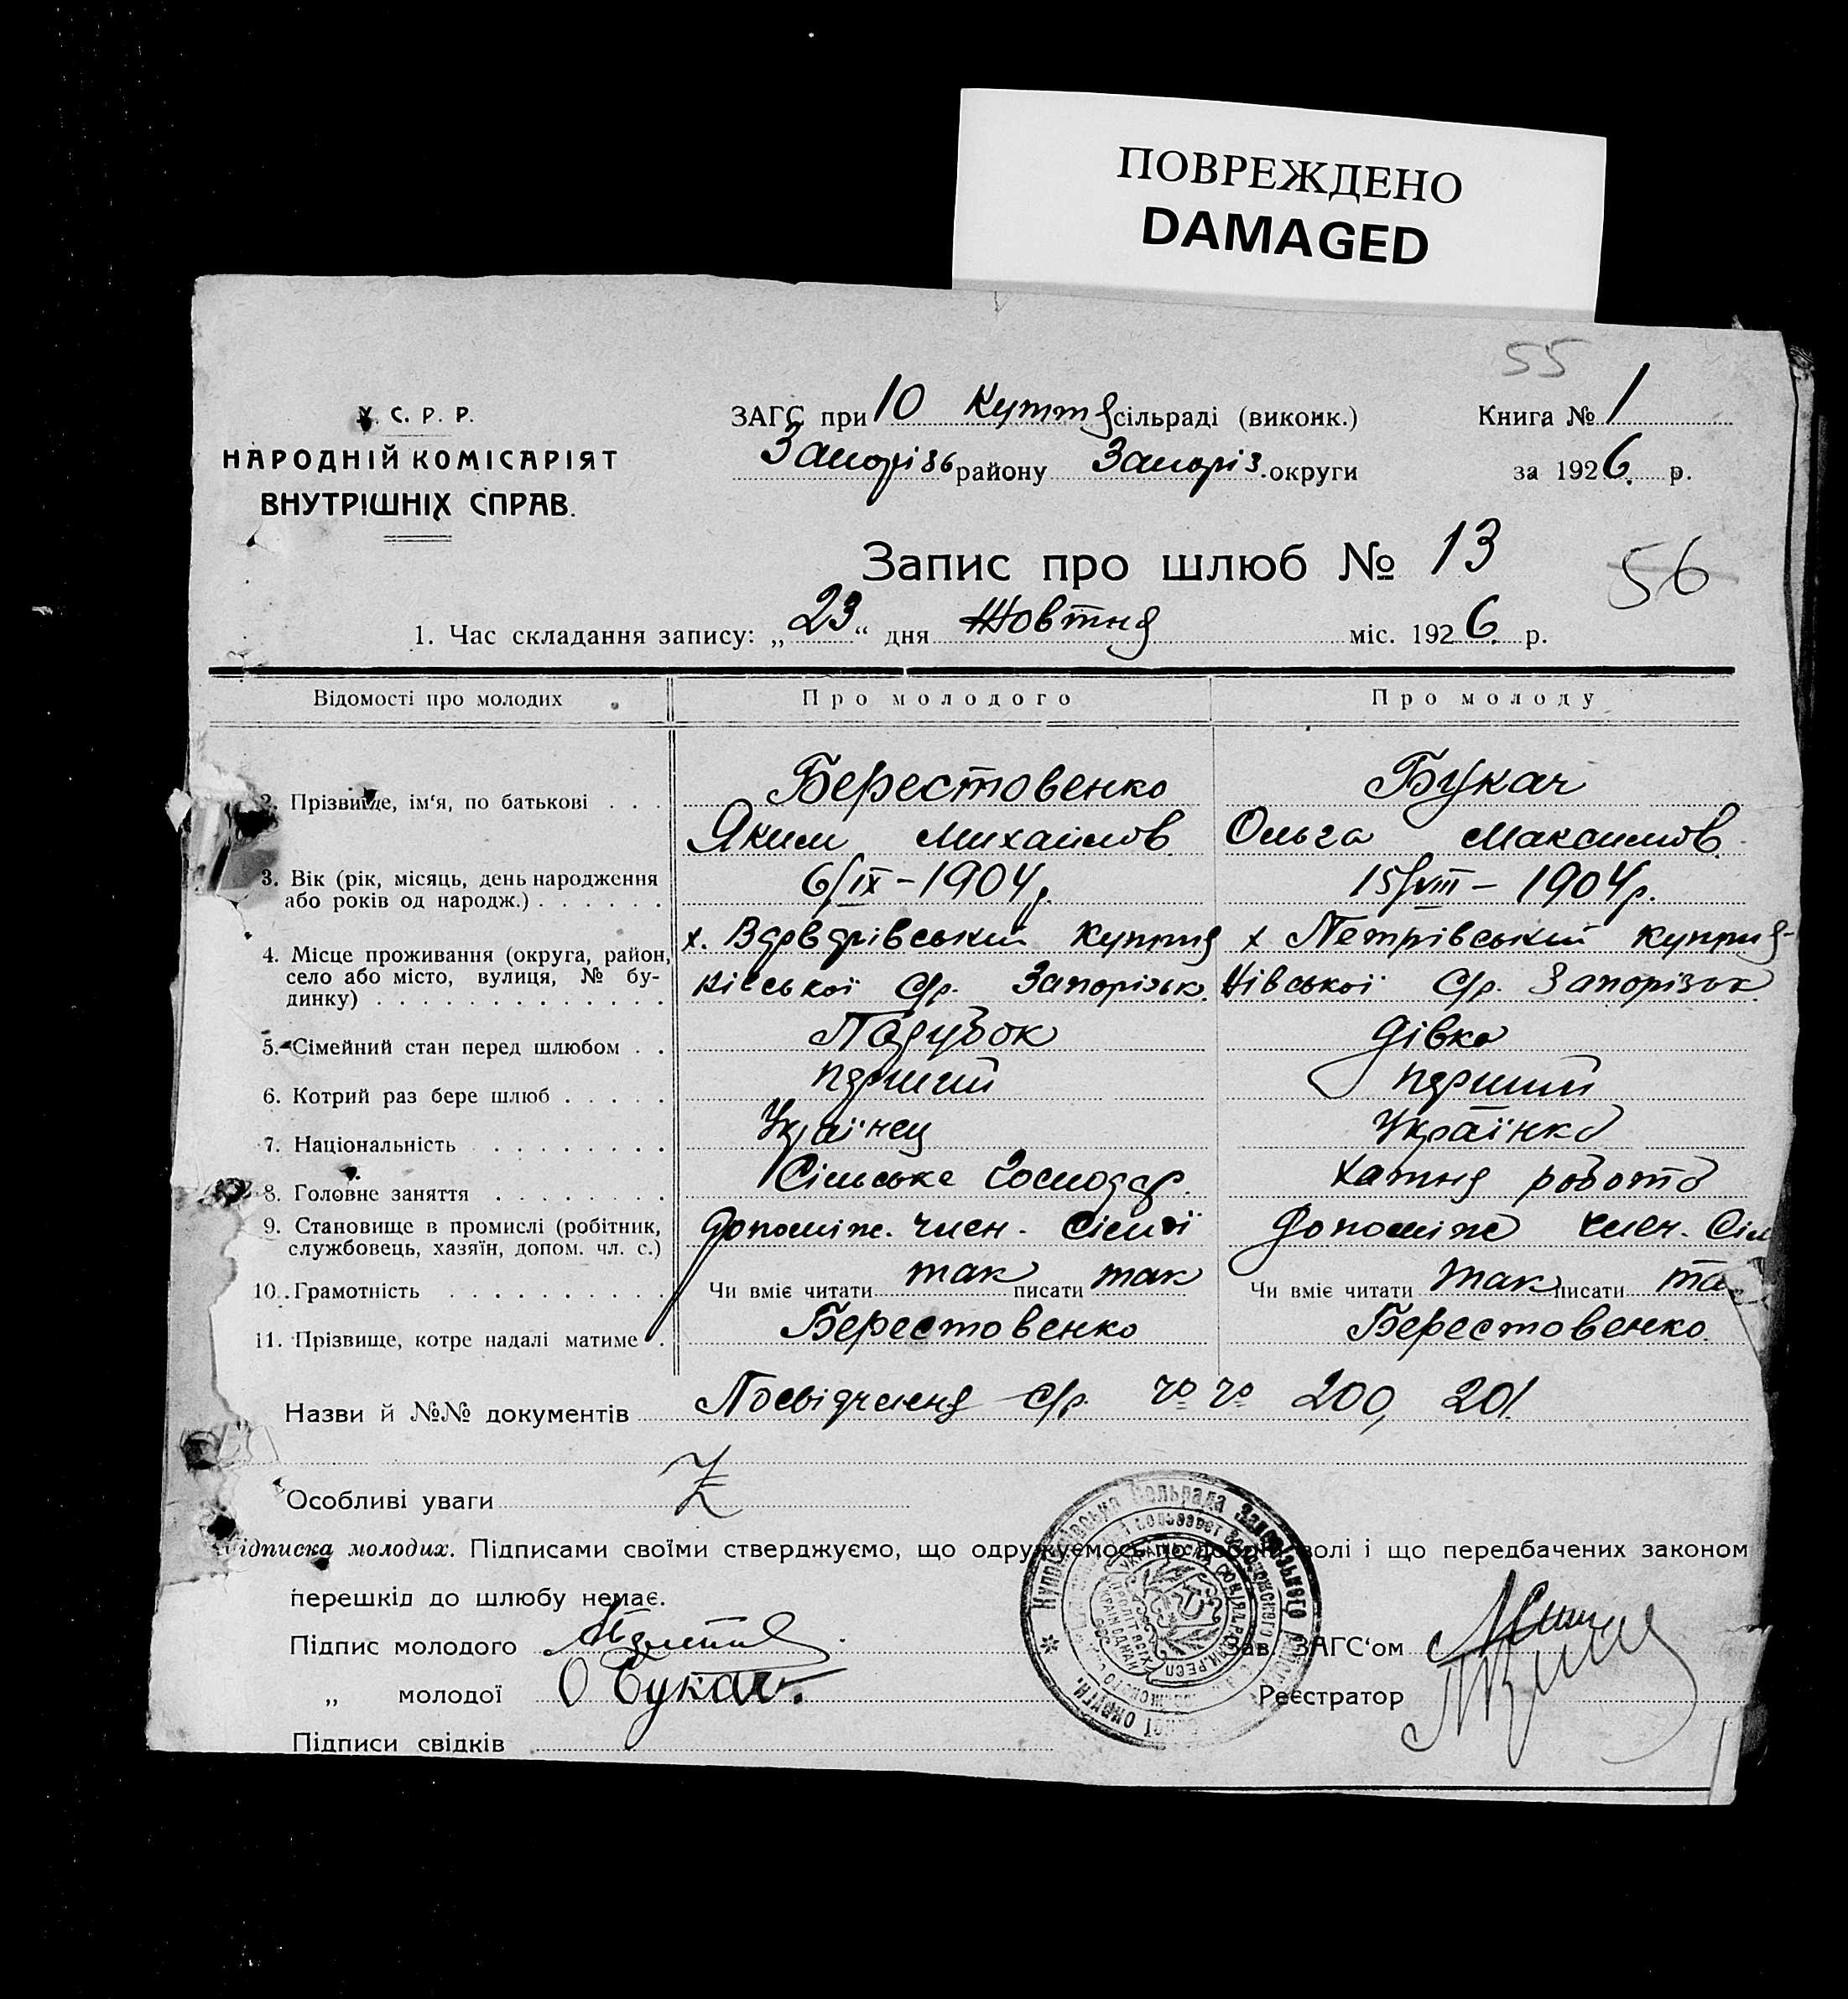 ПОВРЕЖДЕНО
DAMAGED
55
У. С. Р. Р.
НАРОДНІЙ КОМІСАРІЯТ
ВНУТРІШНІХ СПРАВ.
ЗАГС при 10 сільраді (виконк.)
району Запоріз. округи
Книга № 1
за 1926 р.
Запис про шлюб № 13
56
1. Час складання запису: „23“ дня Жовтня міс. 1926 р.
Відомості про молодих
Про молодого
Про молоду
2. Прізвище, ім‘я, по батькові . . .
Берестовенко
Яким Михайлов.
Букач
Ольга Максимов.
3. Вік (рік, місяць, день народження
або років од народж.) . . . . . .
6/ІХ – 1904 р.
15/VIII – 1904 р.
4. Місце проживання (округа, район,
село або місто, вулиця, № бу-
динку) . . . . . . . . . . . . .
х.
С/р. Запорізьк.
х Петрівський
С/р. Запорізьк.
5. Сімейний стан перед шлюбом . .
Парубок
дівка
6. Котрий раз бере шлюб . . . . .
перший
перший
7. Національність . . . . . . . .
Українец
Українка
8. Головне заняття . . . . . . . .
Сільське Господар.
хатня робота
9. Становище в промислі (робітник,
службовець, хазяїн, допом. чл. с.)
допоміж. член. сімʼї
допоміж член. Сім
10. Грамотність . . . . . . . . . .
Чи вміє читати так писати так
Чи вміє читати так писати та
11. Прізвище, котре надалі матиме .
Берестовенко
Берестовенко.
Назви й №№ документів Посвідченя с/р. № № 200, 201
Особливі уваги Z
Підписка молодих. Підписами своїми стверджуємо, що одружуємось по волі і що передбачених законом
перешкід до шлюбу немає.
Підпис молодого
„ молодої О Букач.
Підписи свідків
Зав. ЗАГС‘ом
Реєстратор